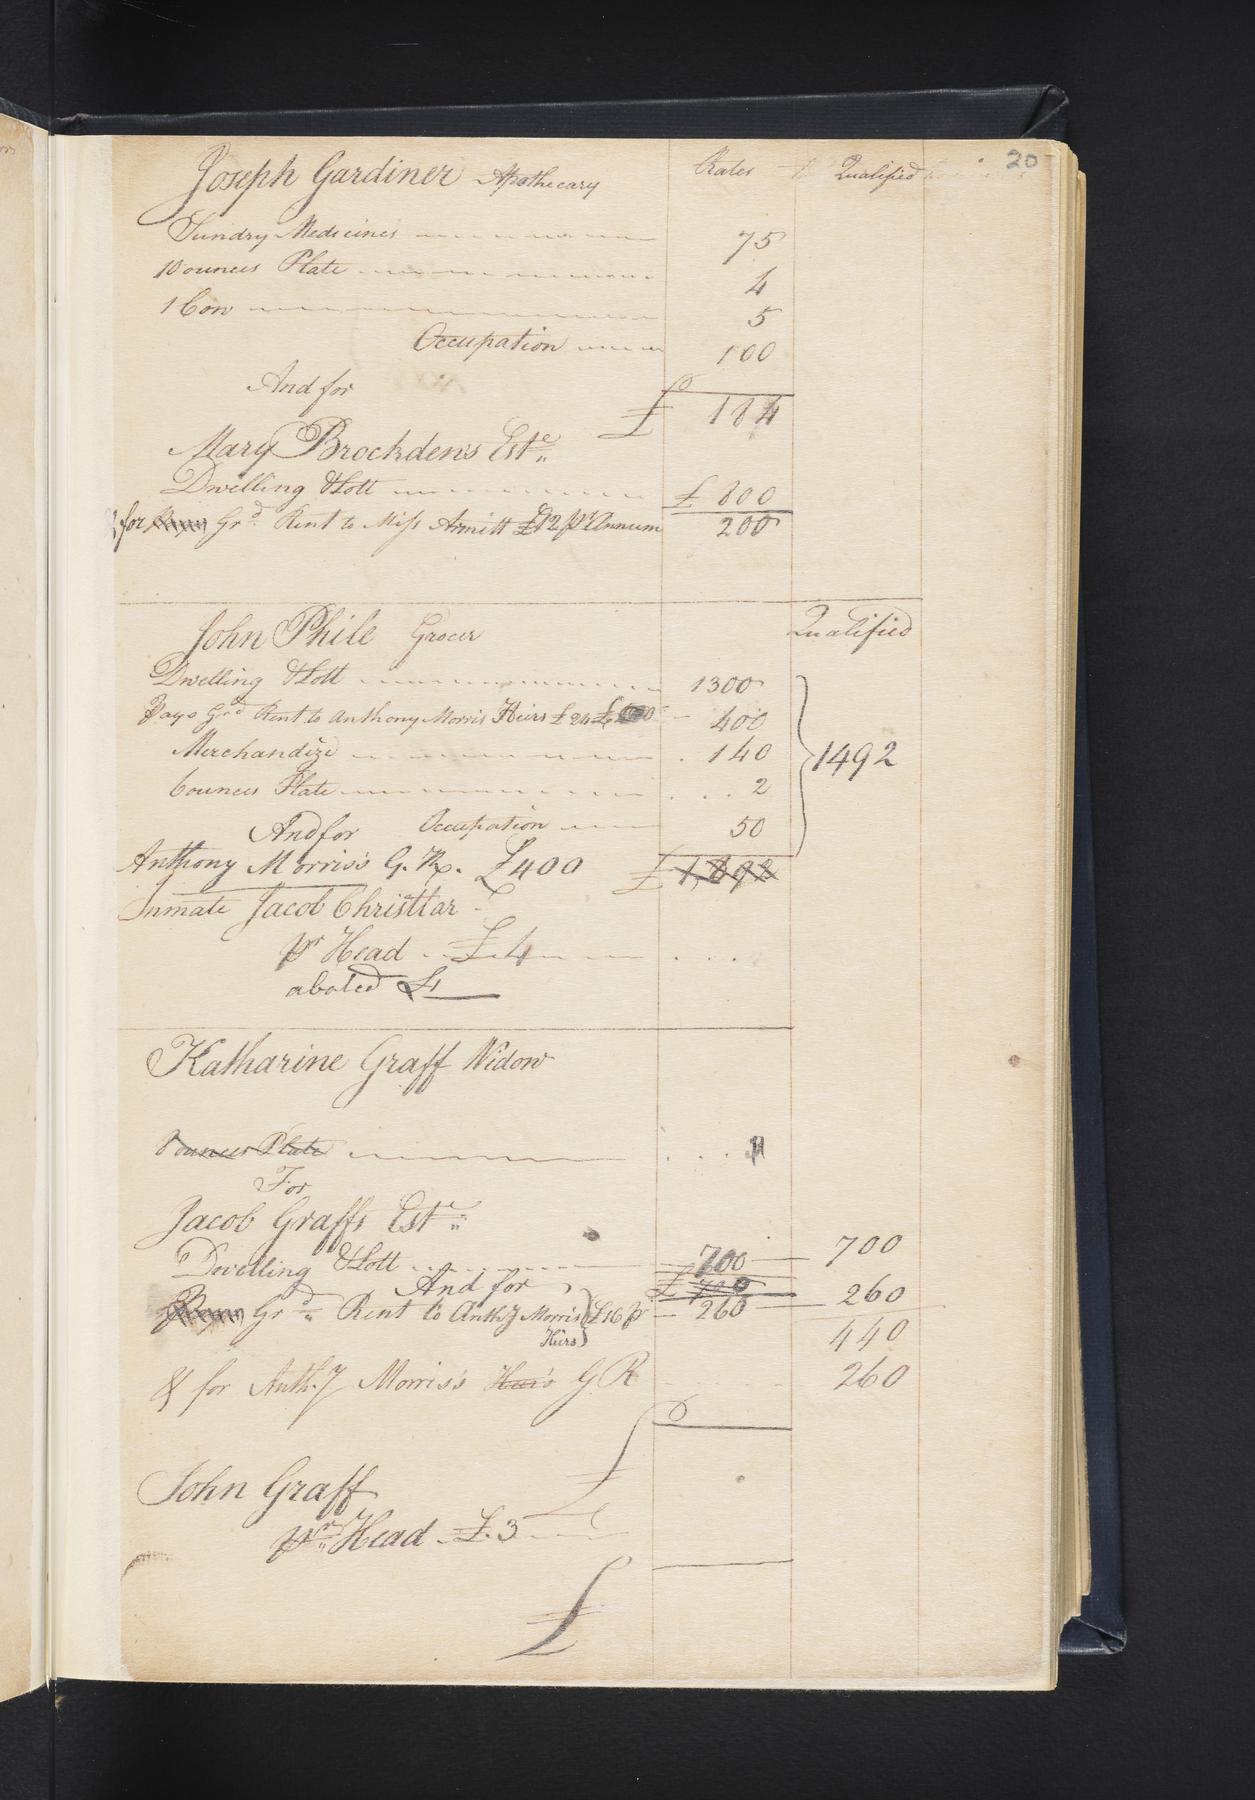 20
Joseph Gardiner Apothecary Rates Qualified
Sundry Medicines 75
10 ounces Plate 4
1 Cow 5
Occupation 100
And for £ 184
Mary Brockden's Este
Dwelling & Lott £ 800
& for Grd Rent to Miss Armitt £12 pr Annum 200
John Phile Grocer Qualified
Dwelling & Lott 1300
Pays Grd Rent to Anthony Morris Heirs £ 24 400
Merchandize 140
6 ounces Plate 2
And for Occupation 50
1492
Anthony Morris's G. R. £400 £ 1,892
Inmate Jacob Christlar
pr Head £ 4
abated £1
Katharine Graff Widow
8 ounces Plate
For
Jacob Graffs Este
Dwelling & Lott 700 700
And for £ 700
Pays Grd Rent to Anthy Morris Heirs £16 p 260 260
440
& for Anthy Morris's Heir's G R 260
£
John Graff
pr Head £. 3
£